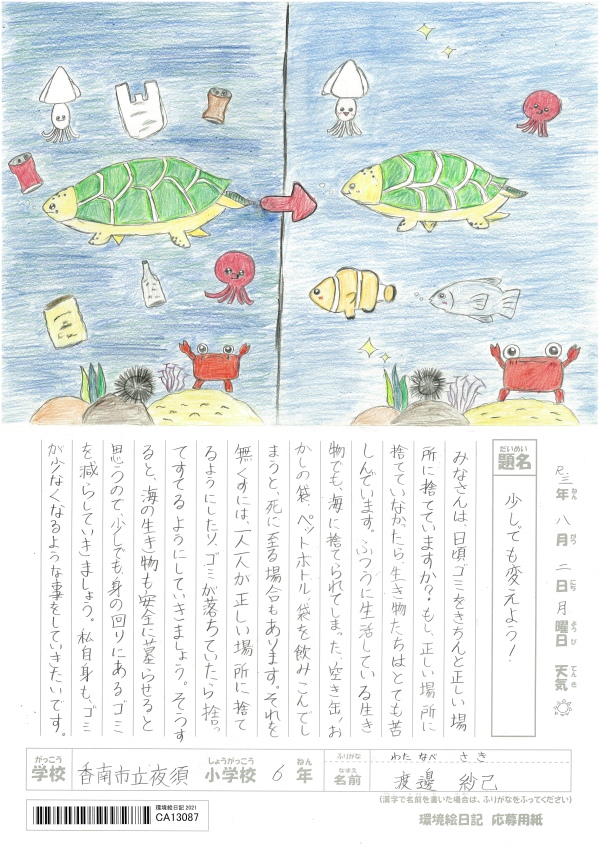 R.三年 八月 二日 月曜日 天気
ねん がつ にち ようび てんき
だいめい
題名
少しでも変えよう!
みなさんは、日頃ゴミをきちんと正しい場
所に捨てていますか?もし、正しい場所に
捨てていなかたら、生き物たちはとても苦
しんでいます。ふつうに生活している生き
物でも、海に捨てられてしまった、空き缶、お
かしの袋、ペットボトル、袋を飲みこんでし
まうと、死に至る場合もあります。それを
無くすには、一人一人が正しい場所に捨て
るようにしたり、ゴミが落ちていたら捨っ
てすてるようにしていきましょう。そうす
ると、海の生き物も、安全に墓らせると
思うので、少しでも、身の回りにあるゴミ
を減らしていきましょう。私自身も、ゴミ
が少なくなるような事をしていきたいです。
がっこう しょうがっこう ねん
学校 香南市立夜須 小学校 6年
ふりがな わたなべ さき
なまえ
名前 渡邊 紗己
(漢字で名前を書いた場合は、ふりがなをふってください)
環境絵日記2021
CA13087
環境絵日記 応募用紙